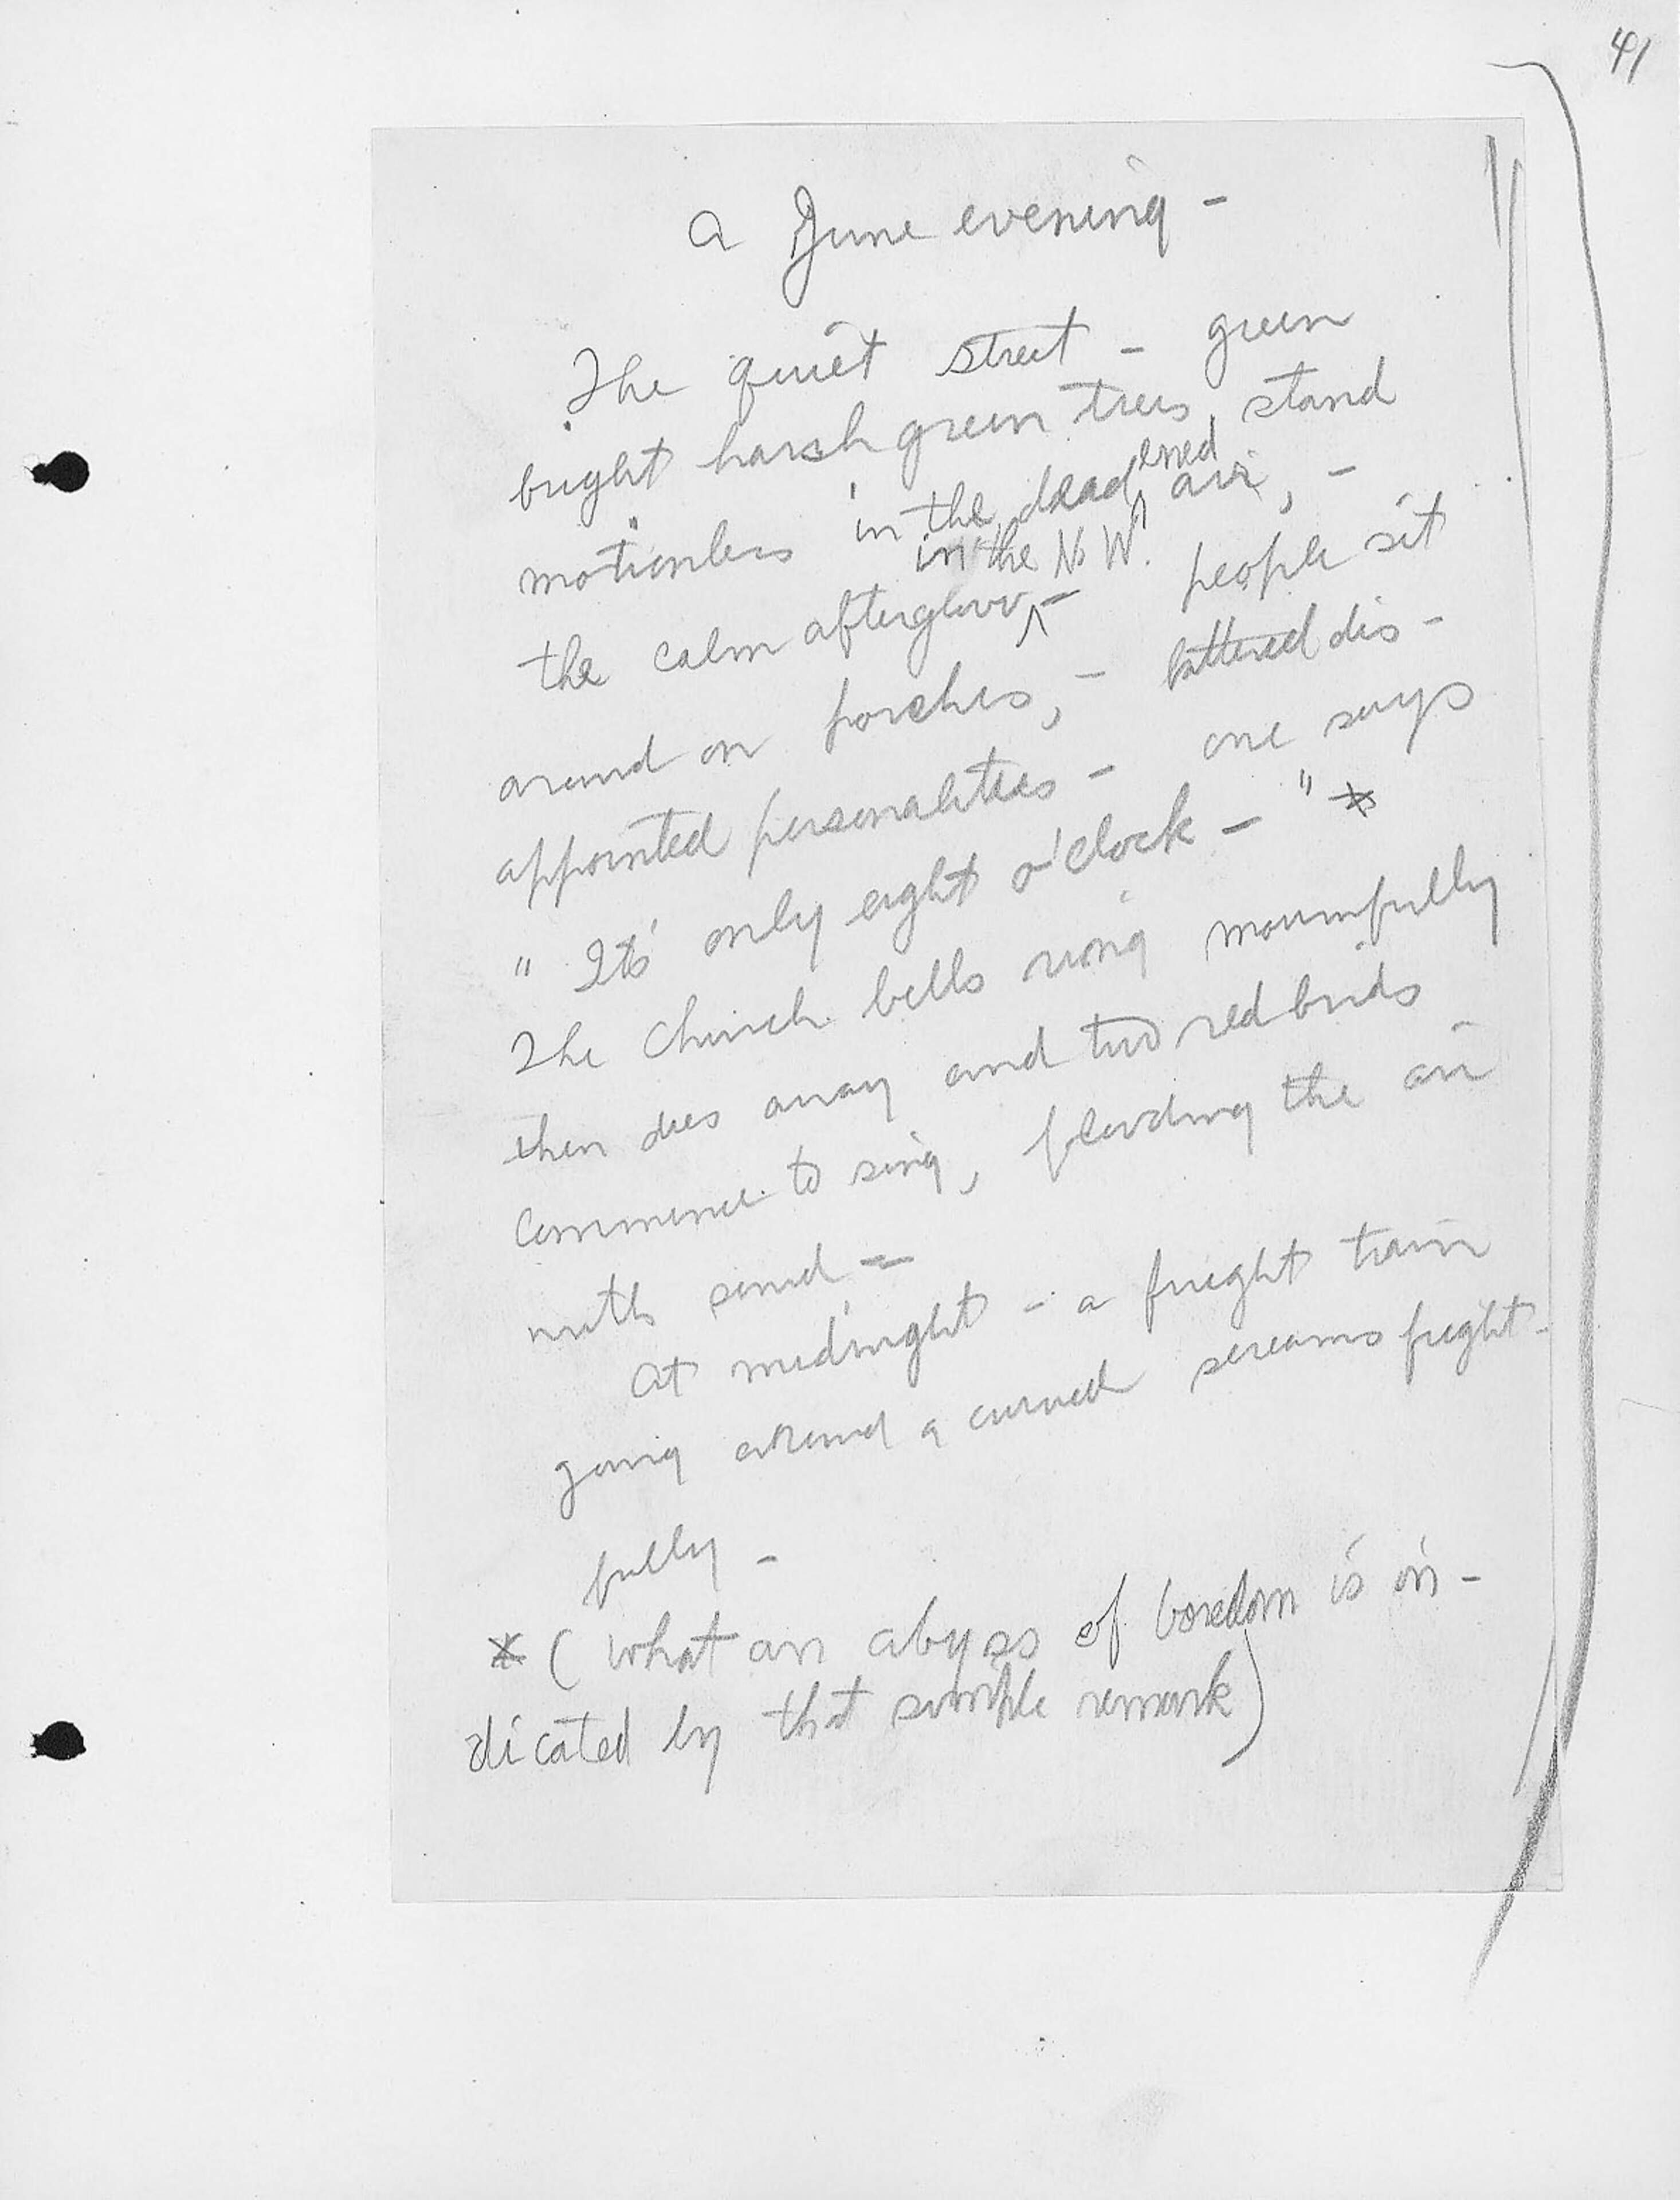 41
A June evening -
The quiet street - green
bright harsh green trees, stand
motionless in the deadened air, -
in the N.W.
the calm afterglow, - people sit
around on porches, - battered dis-
appointed personalities - one says
"It's only eight o'clock - " *
The church bells ring mournfully
then dies away and two redbirds
commence to sing, flooding the air
with sound -
At midnight - a freight train
going around a curved screams fright-
fully -
* (what an abyss of boredom is in-
dicated by that simple remark)